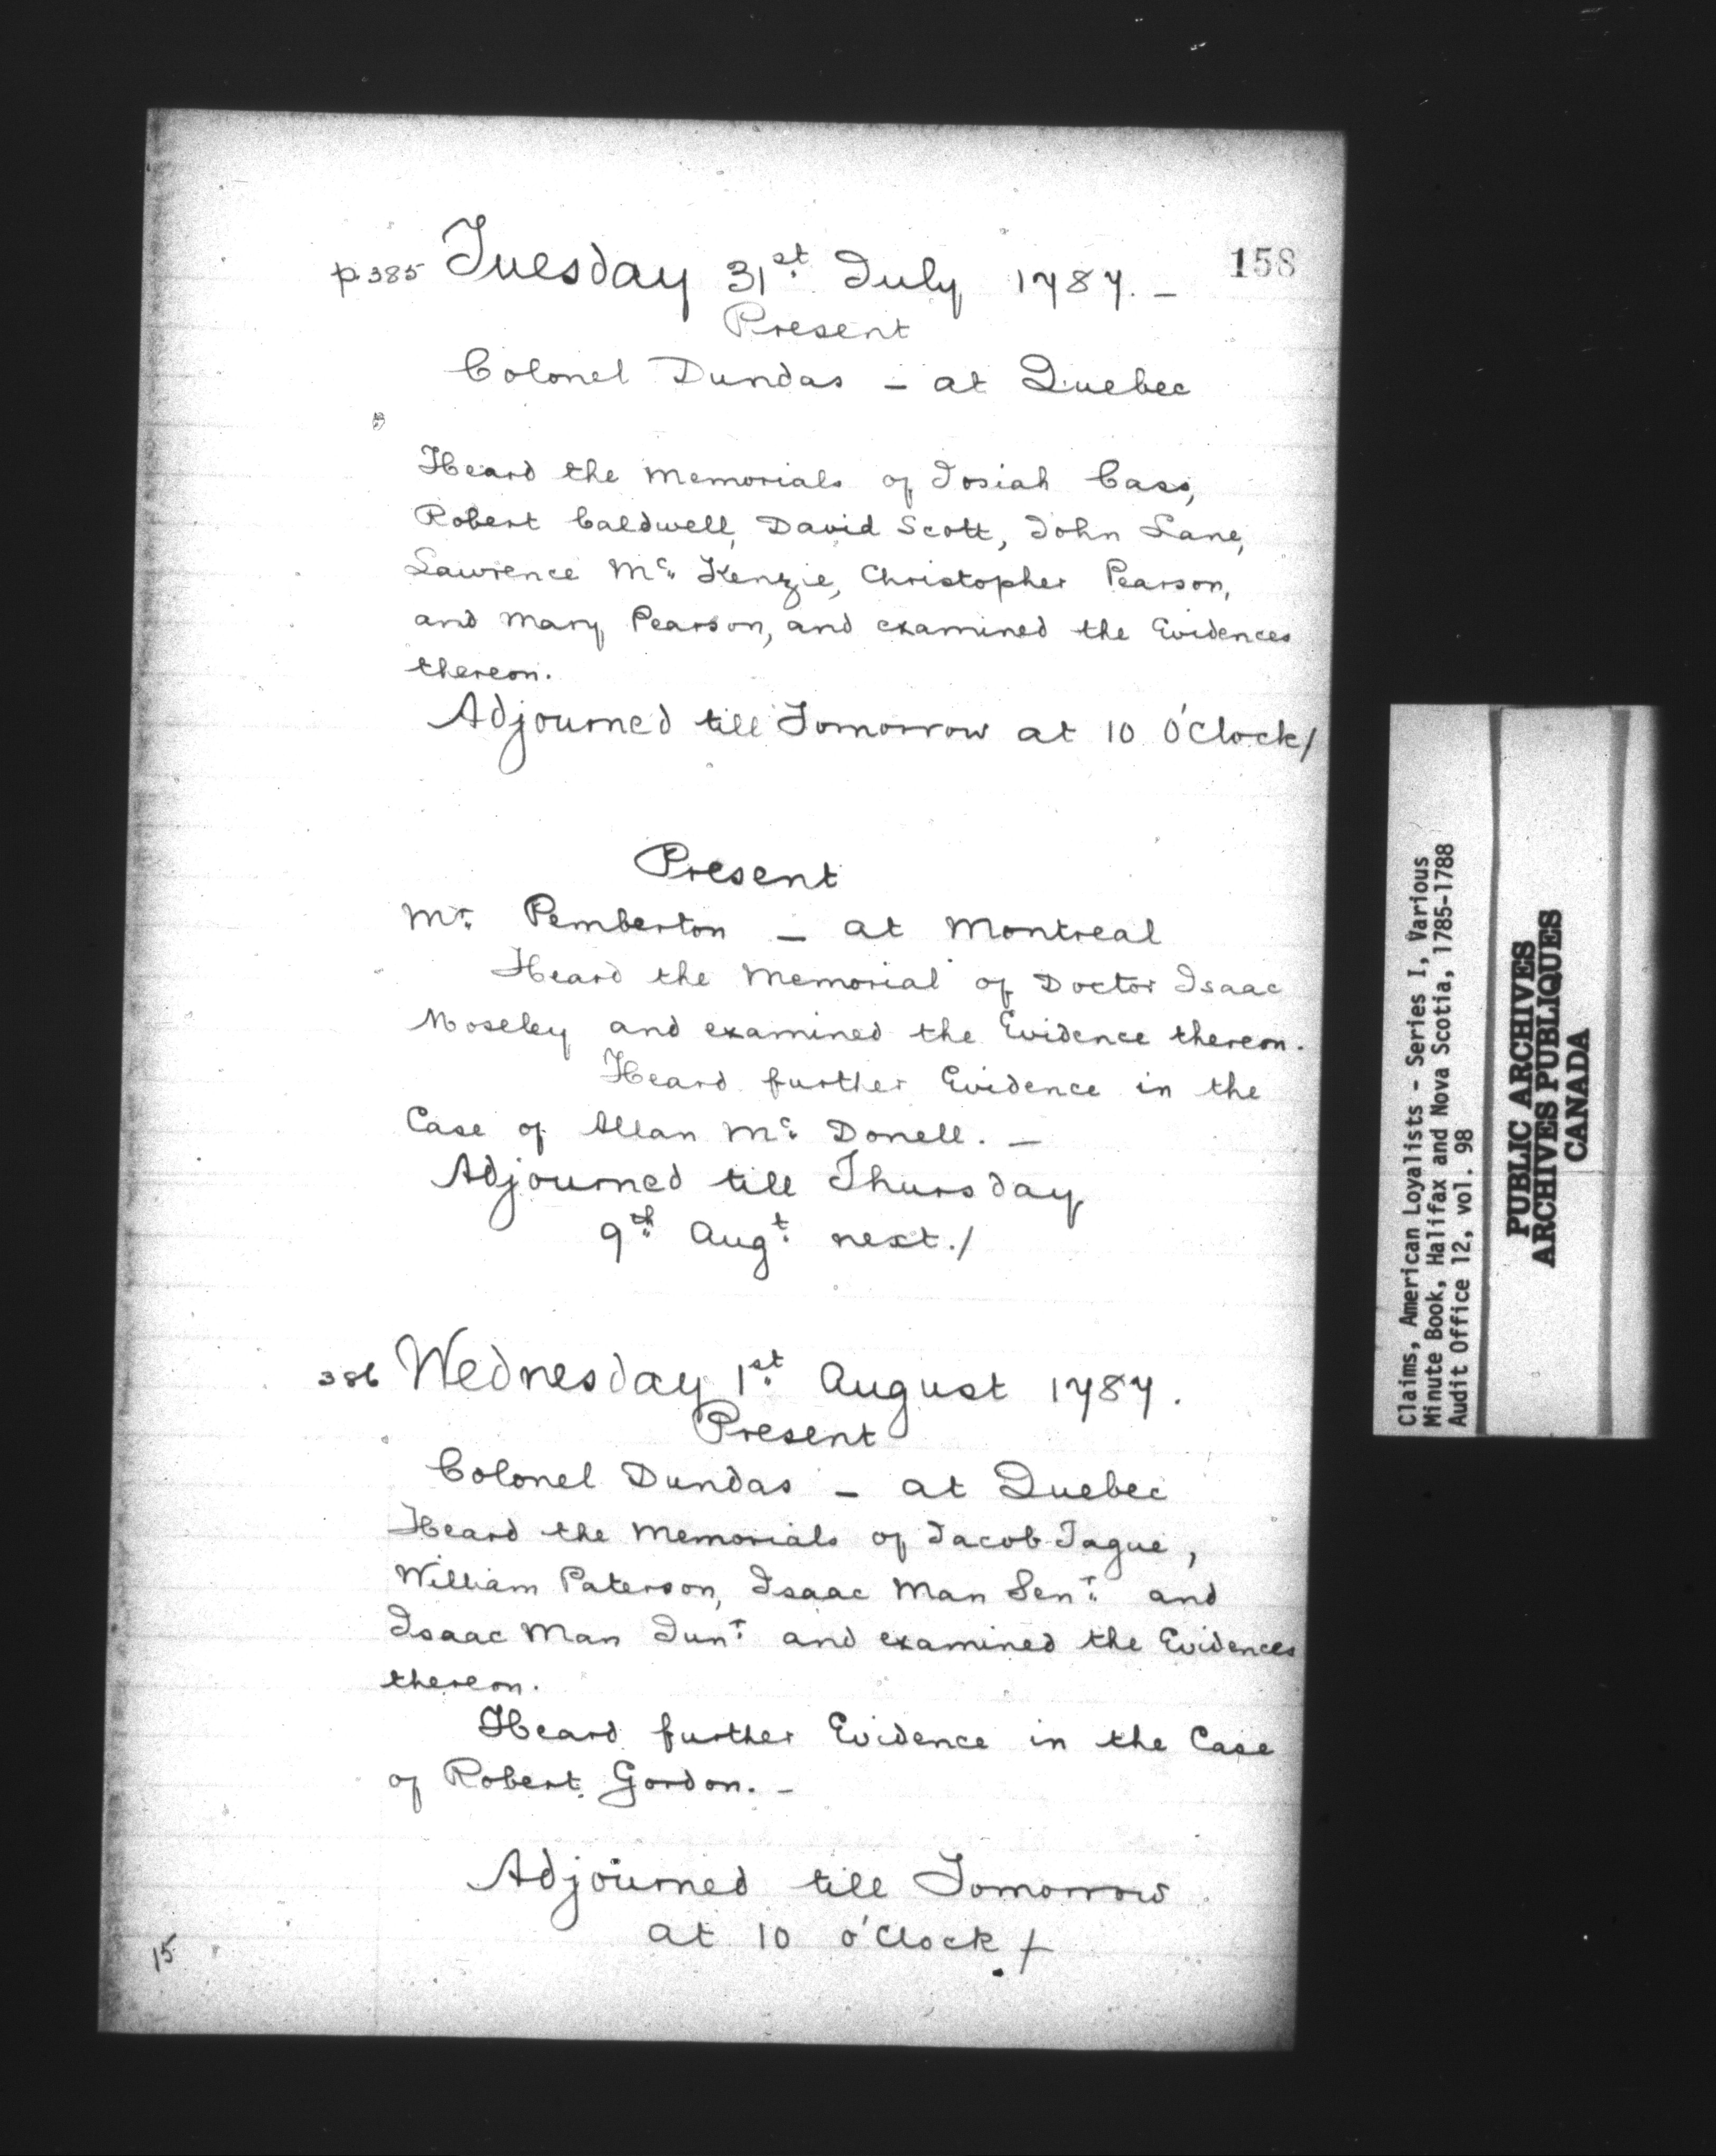 158
p 385 Tuesday 31st July 1787. -
Present
Colonel Dundas - at Quebec
Heard the Memorials of Josiah Cass,
Robert Caldwell, David Scott, John Lane,
Lawrence Mc Kenzie, Christopher Pearson,
and Mary Pearson, and examined the Evidences
thereon.
Adjourned till Tomorrow at 10 O'Clock/
Present
Mr. Pemberton - at Montreal
Heard the Memorial of Doctor Isaac
Moseley and examined the Evidence thereon.
Heard further Evidence in the
Case of Allan Mc Donell. -
Adjourned till Thursday
9th Augt. next./
386 Wednesday 1st August 1787.
Present
Colonel Dundas - at Quebec
Heard the Memorials of Jacob Tague,
William Paterson, Isaac Man Senr. and
Isaac Man Junr. and examined the Evidences
thereon.
Heard further Evidence in the Case
of Robert Gordon. -
Adjourned till Tomorrow
at 10 o'Clock /
15
Claims, American Loyalists - Series I, Various
Minute Book, Halifax and Nova Scotia, 1785-1788
Audit Office 12, vol. 98
PUBLIC ARCHIVES
ARCHIVES PUBLIQUES
CANADA